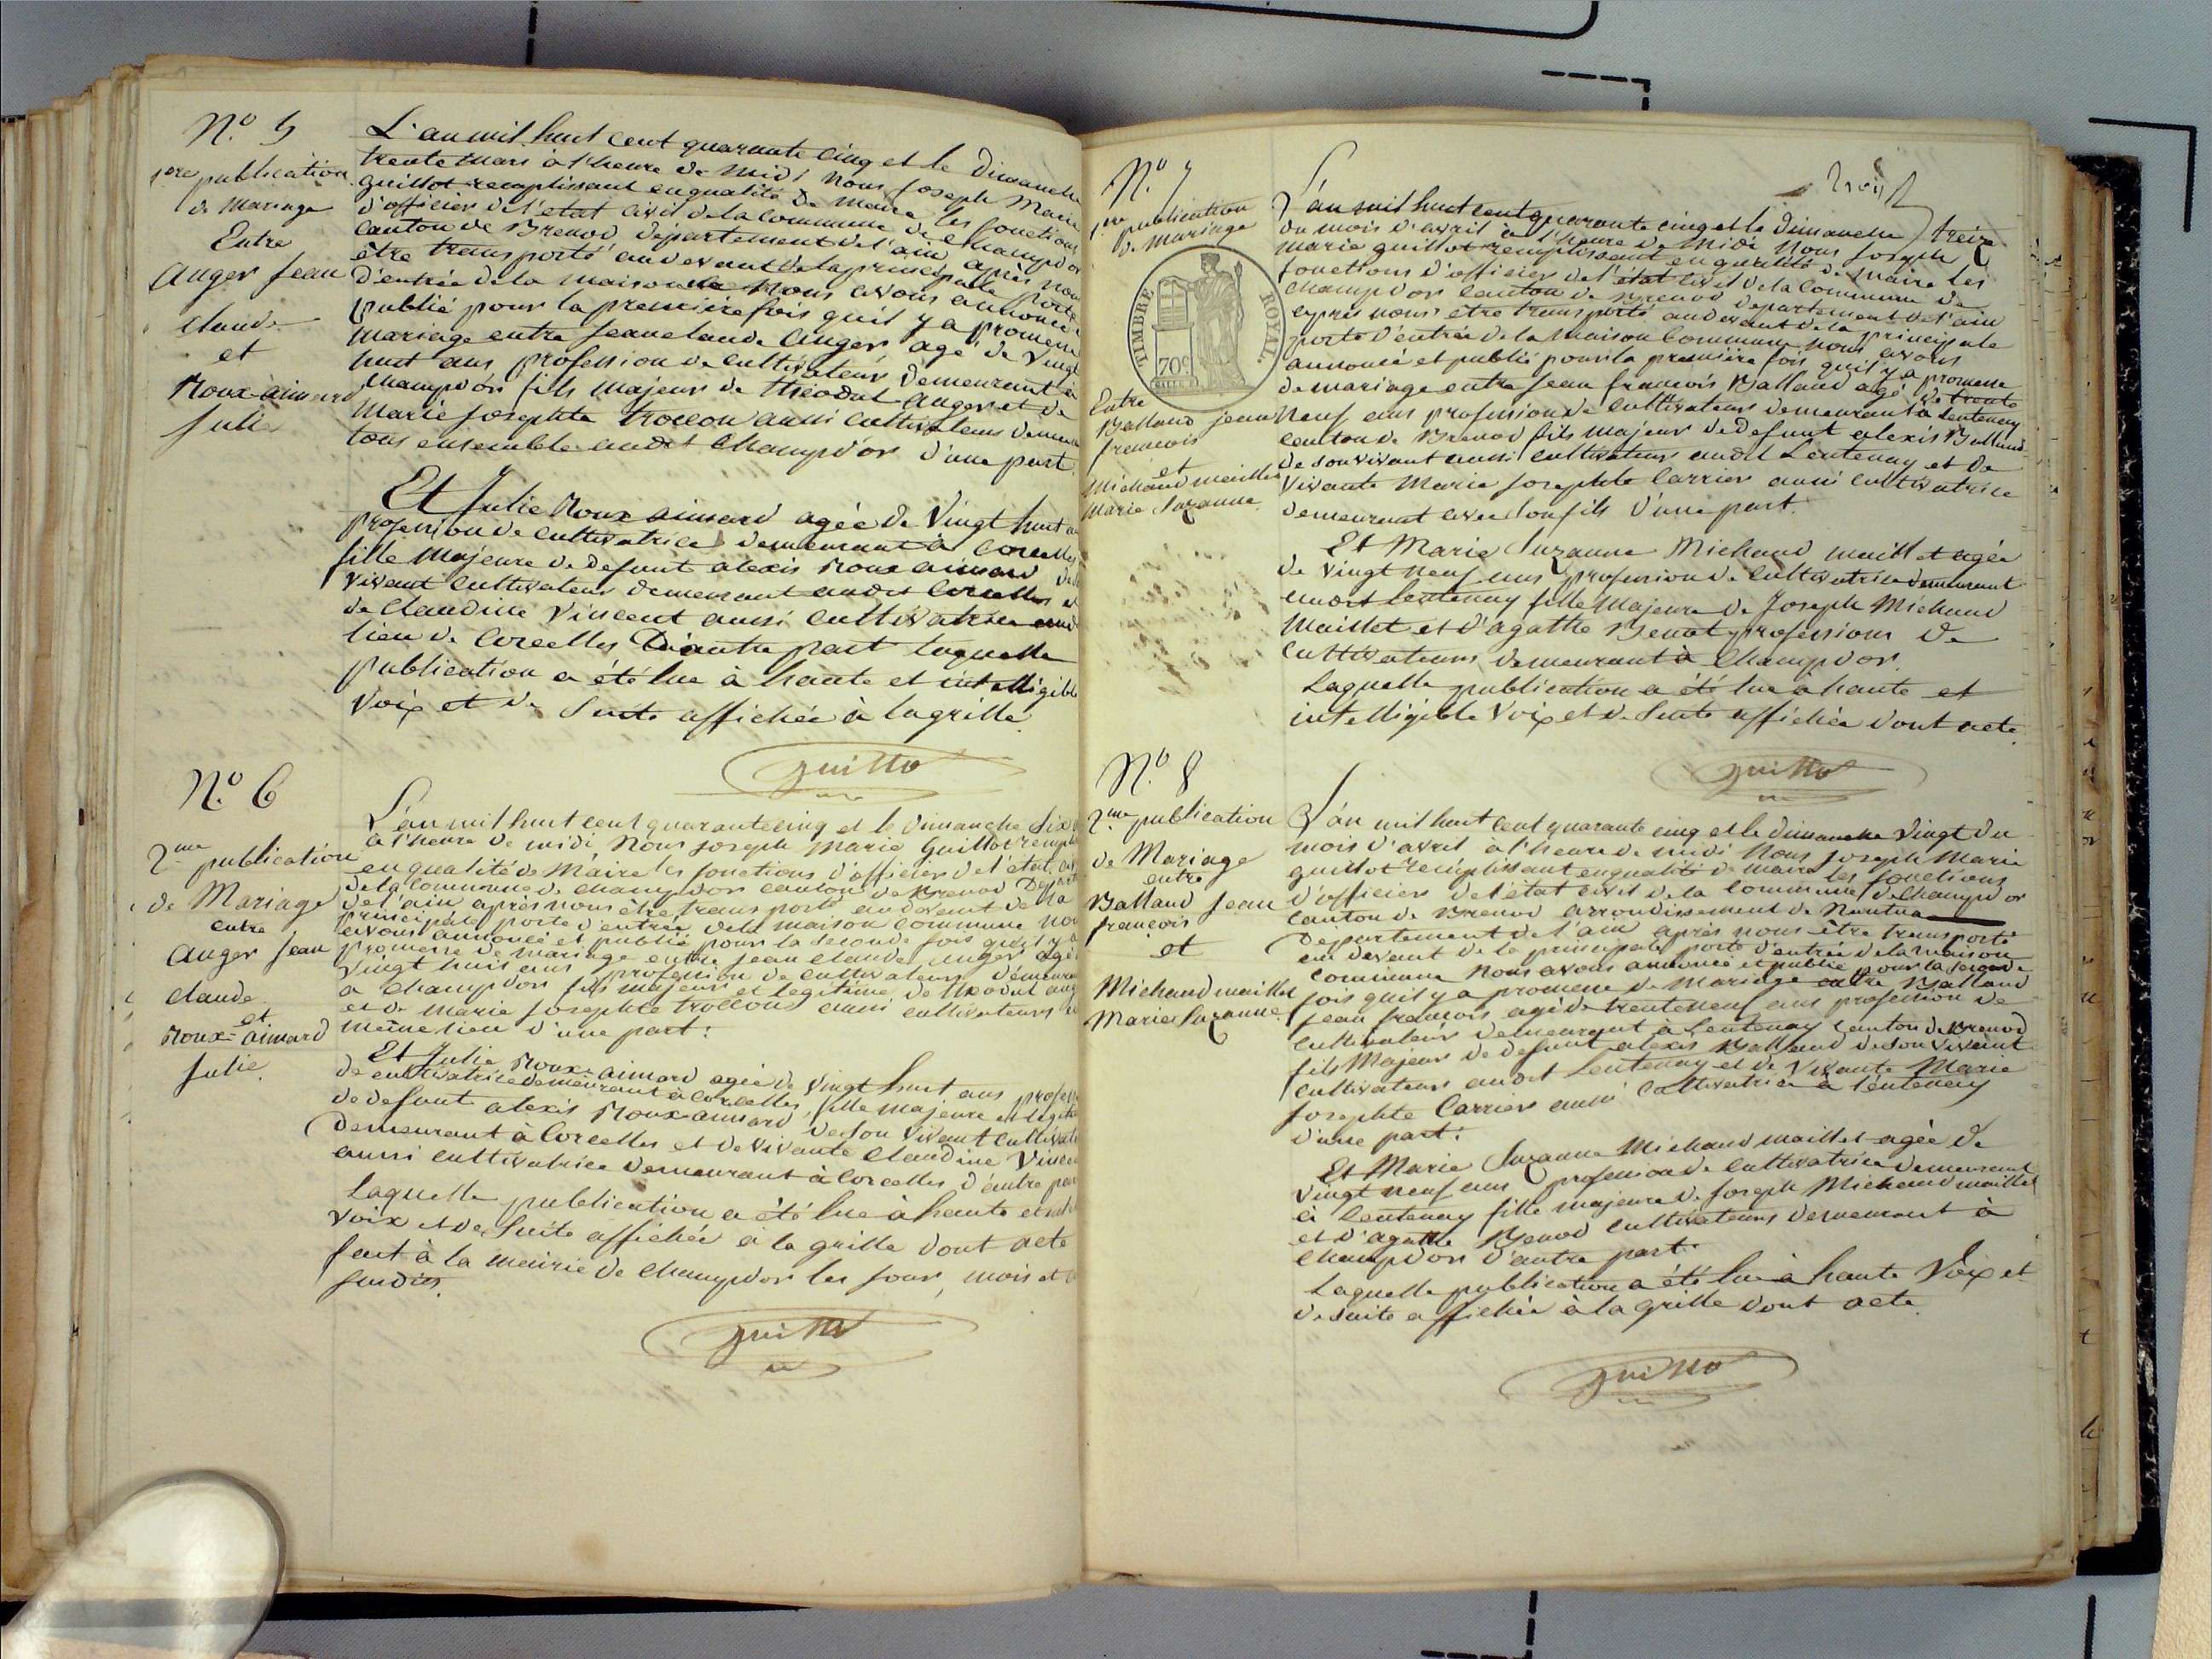 N.o 5
1ere publication
de Mariage
Entre
Auger Jean
Claude
et
Roux-aimard
Julie
L'an mil huit cent quarante cinq et le Dimanche
trente Mars à l'heure de Midi Nous Joseph Marie
guillot remplissant en qualité de Maire les fonctions
d'officier de l'état civil de la Commune de Champdor
Canton de Brenod département de l'ain après nous
être transporté au devant de la principale porte
d'entrée de la maison Nous avons annoncé
publié pour la première fois qu'il y a promesse
mariage entre Jean claude Auger agé de Vingt
huit ans profession de Cultivateur demeurant à
Champdor fils Majeur de théodul Auger et de
Marie Josephte trocon aussi Cultivateurs demeu
tous ensemble audit Champdor d'une part
Et Julie Roux aimard agée de Vingt huit a
profession de cultivatrice demeurant à Corcelles
fille Majeure de defunt alexis Roux aimard de
vivant Cultivateur demeurant audit Corcelles et
de Claudine Vincent aussi cultivatrice aud
lieu de Corcelles D'autre part laquelle
publication a été lue à haute et intelligible
Voix et de Suite affichée à la grille
guillo
N.o 6
2me publication
de Mariage
entre
Auger Jean
Claude
et
Roux-aimard
Julie.
L'an mil huit cent quarante cinq et le dimanche Six
à l'heure de midi Nous Joseph Marie Guillot rempli
en qualité de Maire les fonctions d'officier de l'état civ
de la Commune de Champdor canton de Brenod Dépt
de l'ain après nous être transporté au devant de la
principale porte d'entrée de la maison commune no
avons annoncé et publié pour la seconde fois qu'il y a
promesse de mariage entre Jean claude Auger agé
Vingt huit ans profession de cultivateur demeura
à Champdor fils majeur et légitime de théodul aug
et de Marie Josephte trocon aussi cultivateurs
même lieu d'une part:
Et Julie Roux-aimard agée de Vingt huit ans profess
de cultivatrice demeurant à Corcelles, fille majeure et légiti
de defunt alexis Roux-aimard de son vivant cultivat
Demeurant à Corcelles et de Vivante Claudine Vincen
aussi cultivatrice demeurant à Corcelles d'autre par
Laquelle publication a été lue à haute et
Voix et de Suite affichée à la grille dont acte
fait à la mairie de Champdor les jour, mois et
susdits.
guillo
N.o 7
1ere publication
de Mariage
TIMBRE ROYAL.
70c
Entre
Balland jean
francois
et
Michaud maillet
Marie Suzanne.
L'an mil huit cent quarante cinq et le dimanche treize
du mois d'avril à l'heure de Midi Nous Joseph
Marie guillot remplissant en qualité de Maire les
fonctions d'officier de l'état civil de la Commune de
Champdor canton de Brenod département de l'ain
après nous être transporté au devant de la principale
porte d'entrée de la Maison Commune nous avons
annoncé et publié pour la première fois qu'il y a promesse
de mariage entre Jean francois Balland agé de trente
Neuf ans profession de Cultivateur demeurant à Lentenay
Canton de Brenod fils majeur de defunt alexis Balland
de son vivant aussi cultivateur audit Lentenay et de
Vivante Marie Josephte Carrier aussi cultivatrice
demeurant avec son fils d'une part.
Et Marie Suzanne Michaud maillet agée
de Vingt neuf ans profession de Cultivatrice demeurant
audit Lentenay fille majeure de Joseph Michaud
Maillet et d'agathe Benod professions de
cultivateurs demeurant à Champdor.
Laquelle publication a été lue à haute et
intelligible Voix et de Suite affichée dont acte.
guillo
N.o 8
2me publication
de Mariage
entre
Balland Jean
francois
et
Michaud maillet
Marie Suzanne
L'an mil huit cent quarante cinq et le dimanche Vingt du
mois d'avril à l'heure de midi Nous Joseph Marie
guillot remplissant en qualité de maire les fonctions
d'officier de l'état civil de la Commune de Champdor
Canton de Brenod arrondissement de Nantua
Département de l'ain après nous être transporté
au devant de la principale porte d'entrée de la maison
Commune Nous avons annoncé et publié pour la seconde
fois qu'il y a promesse de Mariage entre Balland
Jean francois agé de trente neuf ans profession de
Cultivateur demeurant à Lentenay Canton de Brenod
fils Majeur de defunt alexis Balland de son vivant
cultivateur audit Lentenay et de Vivante Marie
Josephte Carrier aussi Cultivatrice à Lentenay
d'une part:
Et Marie Suzanne Michaud maillet agée de
Vingt neuf ans profession de cultivatrice demeurant
à Lentenay fille majeure de Joseph Michaud maillet
et d'agathe Benod cultivateurs demeurant à
Champdor d'autre part.
Laquelle publication a été lue à haute Voix et
de suite affichée à la grille dont acte.
guillo